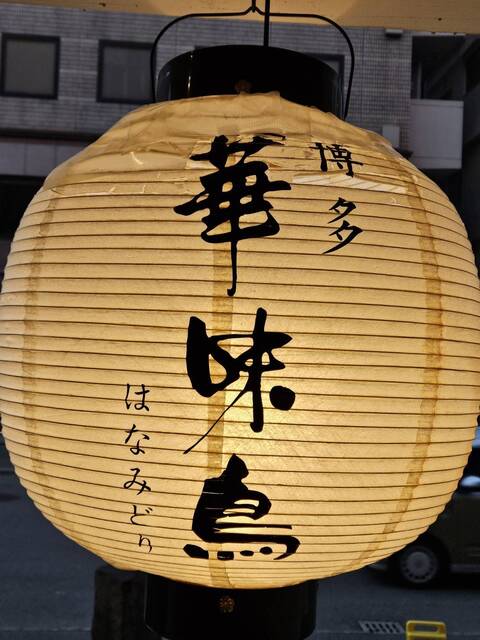 博多
華味鳥
はなみどり